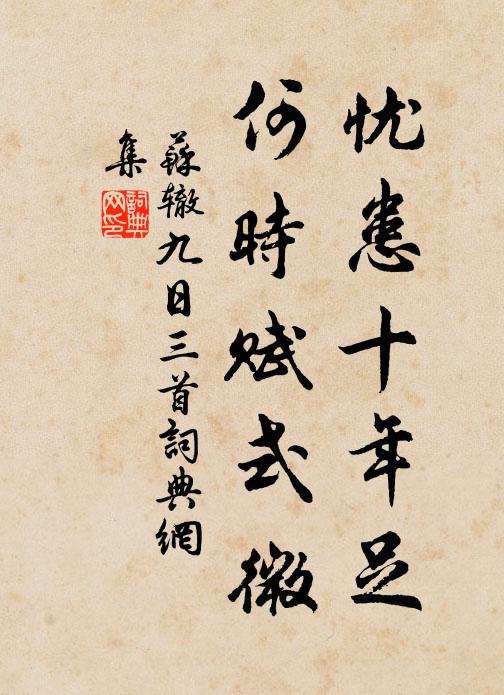 忧患十年足
何時赋式微
蘇辙九日三首詞典網
集
詞典
网印